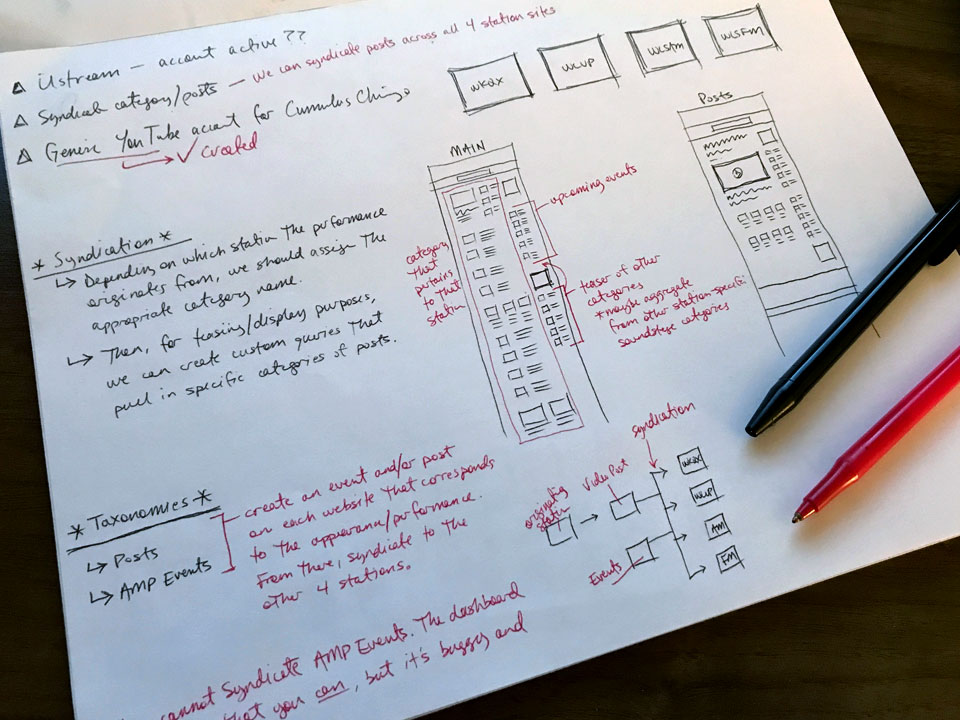 Ustream — accout active??
Syndicate category/posts — we can syndicate posts across all 4 station sites
Generic YouTube accout for Cumulus Chicago
✓ created
WKQX
WLUP
WLSAM
WLSFM
MAIN
Posts
upcoming events
category
that
pertains
to that
station
teaser of other
categories
*maybe aggregate
from other station-specific
soundstage categories
* Syndication *
↳ Depending on which station the performance
originates from, we should assign the
appropriate category name.
↳ Then, for teasing/display purposes,
we can create custom queries that
pull in specific categories of posts.
* Taxonomies *
↳ Posts
↳ AMP Events
create an event and/or post
on each website that corresponds
to the appearance/performance.
From there, syndicate to the
other 4 stations.
syndication
originating
station
Video Post
Events
WKQX
WLUP
AM
FM
cannot Syndicate AMP Events. The dashboard
that you can, but it's buggy and